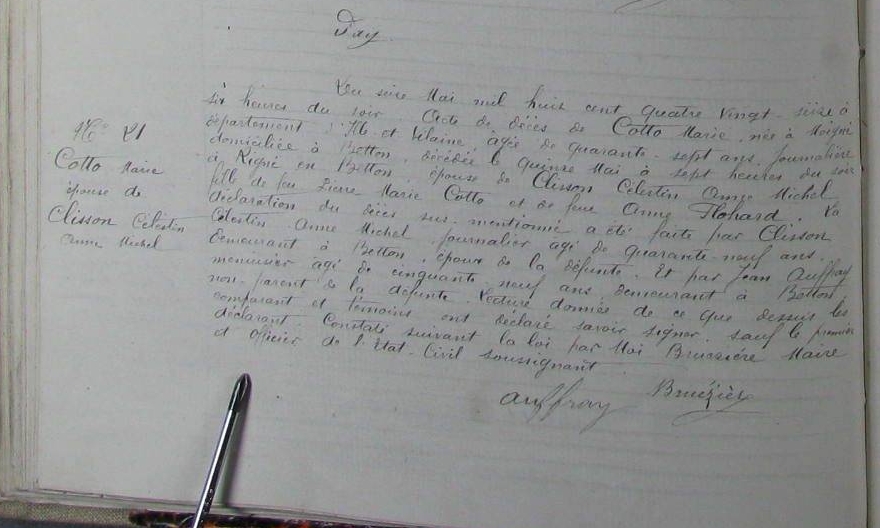 Fay
N° 21
Cotto Marie
épouse de
Clisson Célestin
Anne Michel
Du seize Mai mil huit cent quatre vingt-seize à
six heures du soir Acte de décès de Cotto Marie, née à Moigné
département d'Ille et Vilaine, agée de quarante-sept ans, journalière
domiciliée à Betton, décédée le quinze Mai à sept heures du soir
à Rigné en Betton, épouse de Clisson Célestin Anne Michel
fille de feu Pierre Marie Cotto et de feue Anne Flohard. La
déclaration du décès sus-mentionné a été faite par Clisson
Célestin Anne Michel journalier agé de quarante-neuf ans,
demeurant à Betton, époux de la défunte. Et par Jean Auffray
menuisier agé de cinquante neuf ans, demeurant à Betton,
non-parent de la défunte. Lecture donnée de ce que dessus les
comparant et témoins ont déclaré savoir signer, sauf le premier
déclarant. Constaté suivant la loi par Moi Bruézière Maire
et Officier de l'Etat-Civil soussignant.
Auffray Bruézière